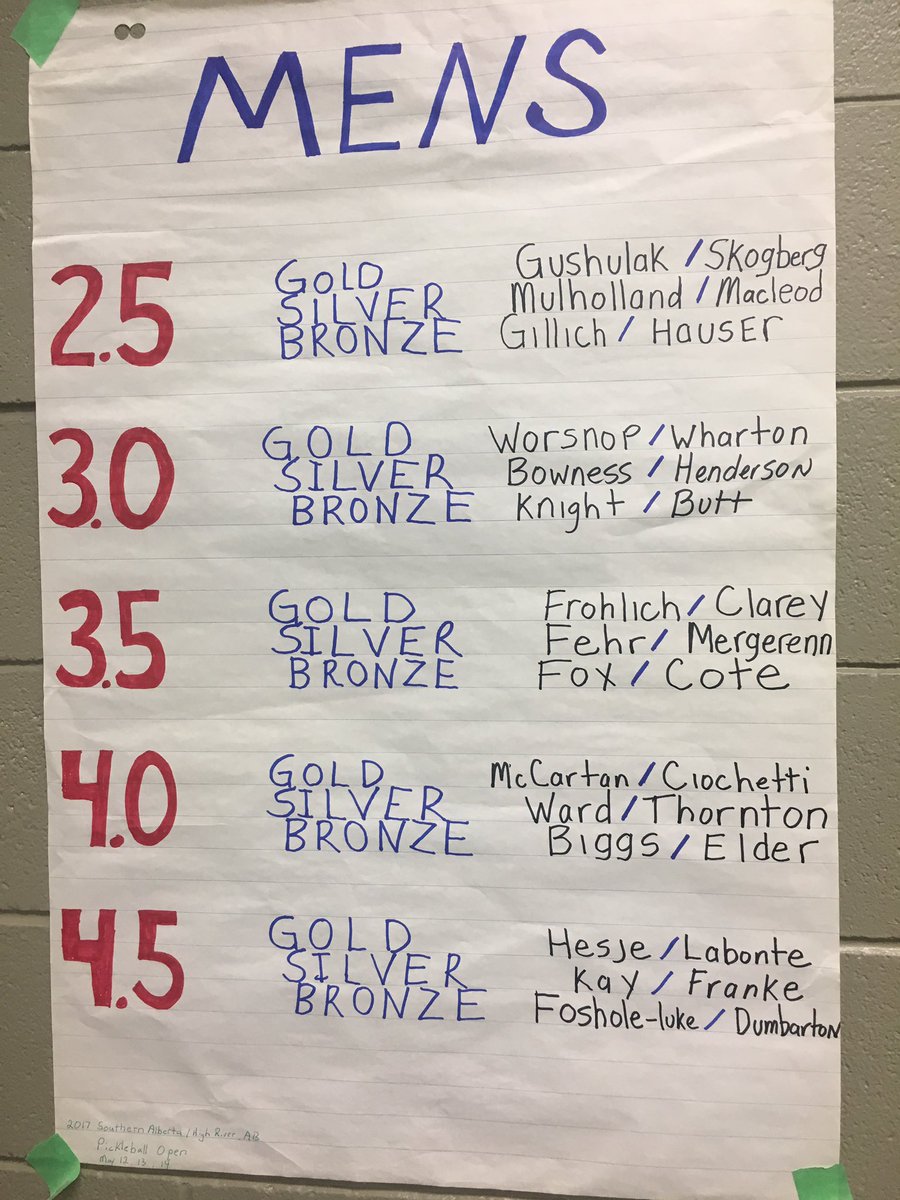 MENS
2.5 GOLD Gushulak / Skogberg
SILVER Mulholland / Macleod
BRONZE Gillich / Hauser
3.0 GOLD Worsnop / Wharton
SILVER Bowness / Henderson
BRONZE Knight / Butt
3.5 GOLD Frohlich / Clarey
SILVER Fehr / Mergerenn
BRONZE Fox / Cote
4.0 GOLD McCartan / Ciochetti
SILVER Ward / Thornton
BRONZE Biggs / Elder
4.5 GOLD Hesje / Labonte
SILVER Kay / Franke
BRONZE Foshole-luke / Dumbarton
2017 Southern Alberta / High River AB
Pickleball Open
May 12, 13, 14